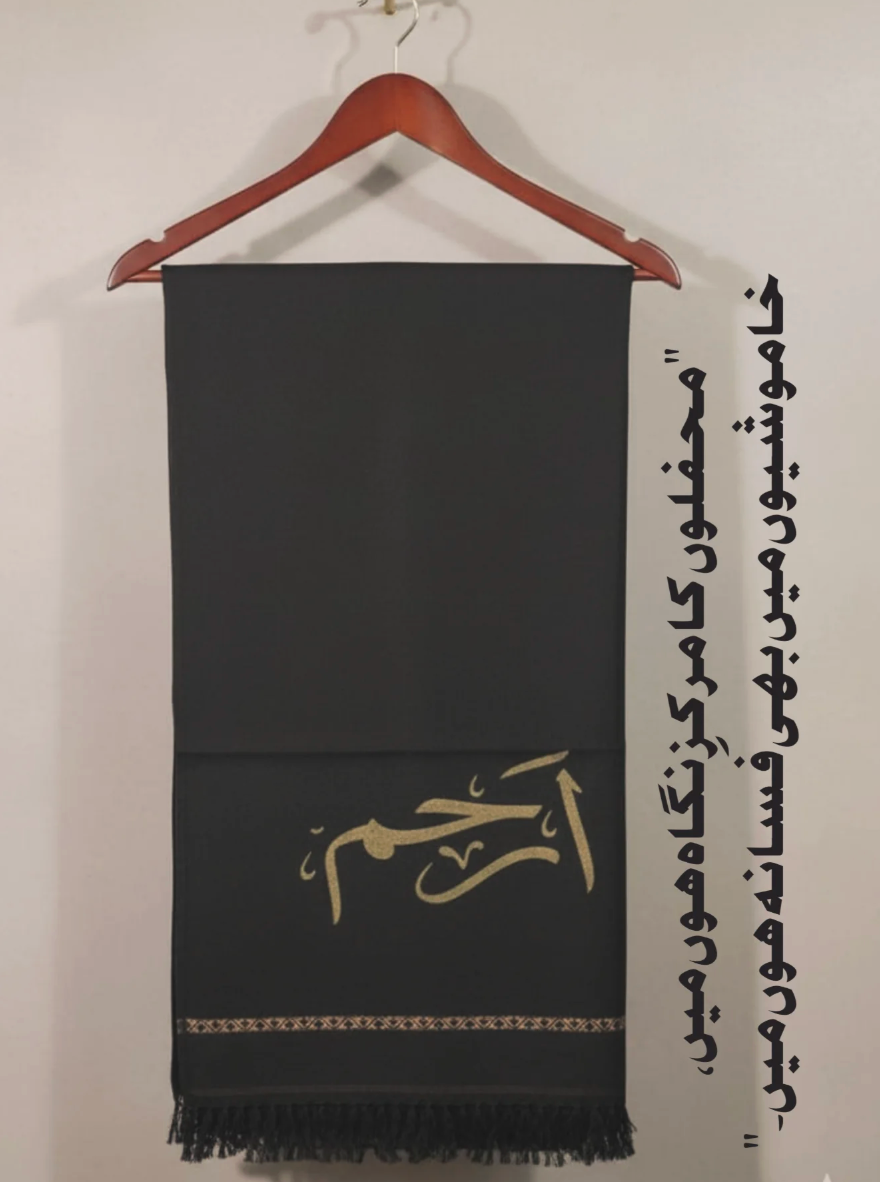 ارحم
"محفلوں کا مرکزِ نگاہ ہوں میں،
خاموشیوں میں بھی فسانہ ہوں میں۔"